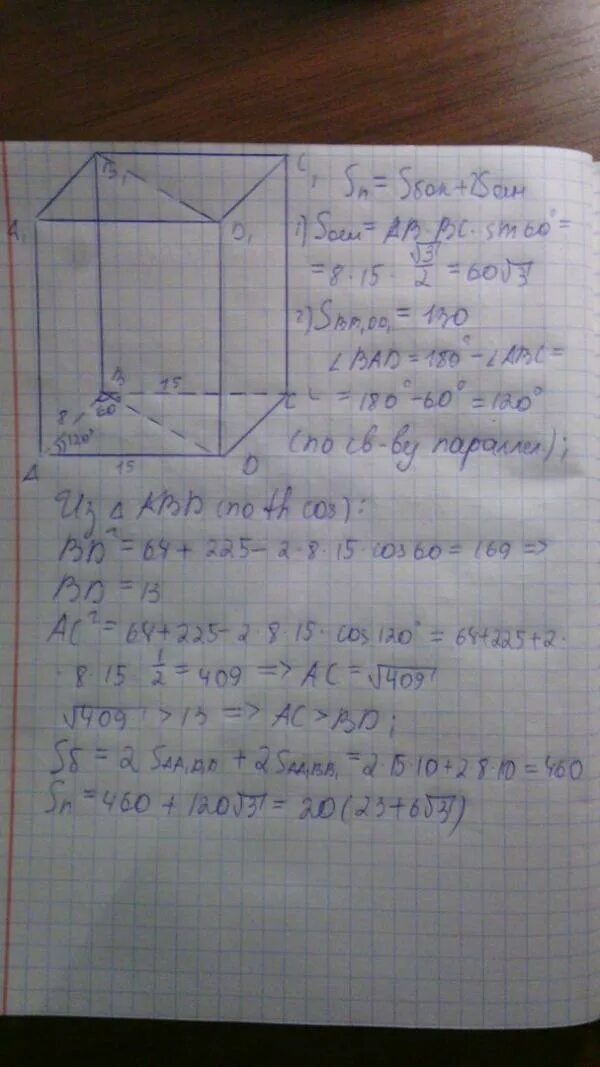 B₁
C₁
A₁
D₁
B
15
C
8
60°
120°
A
15
D
Sп = Sбок + 2Sосн
1) Sосн = AB · BC · sin 60° =
= 8 · 15 · √3/2 = 60√3
2) S_BB₁DD₁ = 130
∠BAD = 180° - ∠ABC =
= 180° - 60° = 120°
(по св-ву параллел.);
Из △ ABD (по th cos):
BD² = 64 + 225 - 2 · 8 · 15 · cos 60 = 169 =>
BD = 13
AC² = 64 + 225 - 2 · 8 · 15 · cos 120° = 64 + 225 + 2 ·
· 8 · 15 · 1/2 = 409 => AC = √409
√409 > 13 => AC > BD;
Sб = 2 S_AA₁D₁D + 2S_AA₁BB₁ = 2 · 15 · 10 + 2 · 8 · 10 = 460
Sп = 460 + 120√3 = 20(23 + 6√3)